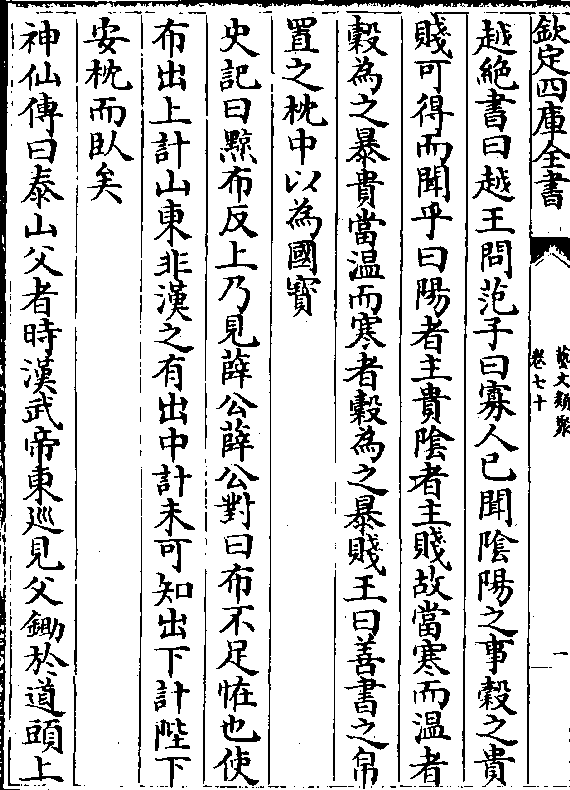 欽定四庫全書
藝文類聚
卷七十
一
越絶書曰越王問范子曰寡人已聞隂陽之事穀之貴
賤可得而聞乎曰陽者主貴隂者主賤故當寒而温者
穀為之暴貴當温而寒者穀為之暴賤王曰善書之帛
置之枕中以為國寳
史記曰黥布反上乃見薛公薛公對曰布不足恠也使
布出上計山東非漢之有出中計未可知出下計陛下
安枕而臥矣
神仙傳曰泰山父者時漢武帝東廵見父鋤於道頭上